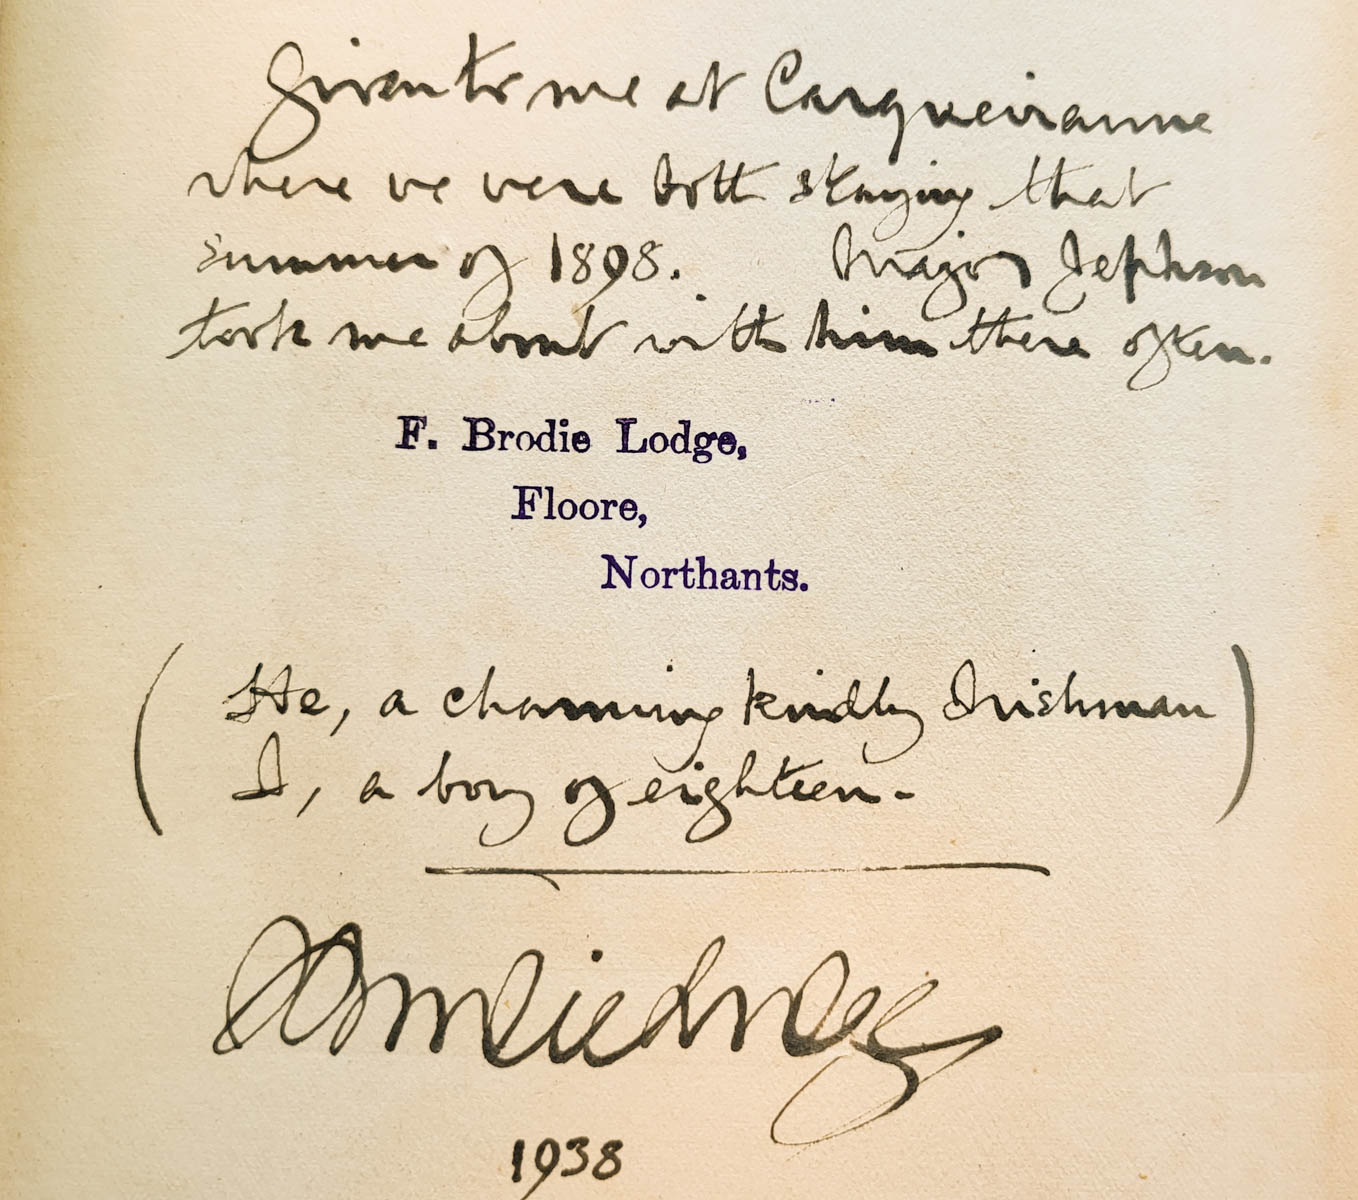 Given to me at Carqueiranne
where we were both staying that
summer of 1898. Major Jephson
took me about with him there often.
F. Brodie Lodge,
Floore,
Northants.
(He, a charming kindly Irishman
I, a boy of eighteen.)
FBrodieLodge
1938